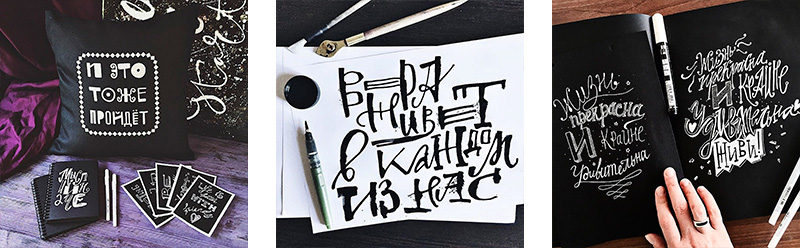 И ЭТО
ТОЖЕ
ПРОЙДЁТ
ВЕРА
ЖИВЕТ
в КАЖДОМ
ИЗ НАС
Жизнь
прекрасна
И крайне
Удивительна
Жизнь
прекрасна
И КРАЙНЕ
Удивительна
ЖИВИ!